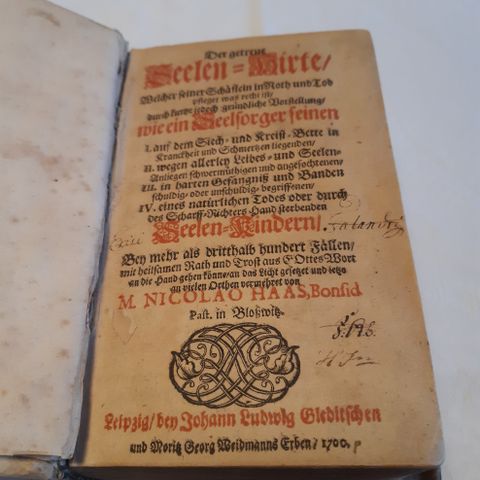 Der getreue
Seelen-Hirte/
Welcher seiner Schäflein in Noth und Tod
pfleget was recht ist/
durch kurtze jedoch gründliche Vorstellung/
wie ein Seelsorger seinen
I. auf dem Siech- und Kreist-Bette in
Kranckheit und Schmertzen liegenden/
II. wegen allerley Leibes- und Seelen-
Anliegen schwermüthigen und angefochtenen/
III. in harten Gefängniß und Banden
schuldig- oder unschuldig-begriffenen/
IV. eines natürlichen Todes oder durch
des Scharff-Richters Hand sterbenden
Seelen-Kindern/
Bey mehr als dritthalb hundert Fällen/
mit heilsamen Rath und Trost aus GOttes Wort
an die Hand gehen könne/an das Licht gesetzet und ietzo
an vielen Orthen vermehret von
M. NICOLAO HAAS, Bonsid.
Past. in Bloßwitz.
Leipzig/bey Johann Ludwig Gleditschen
und Moritz Georg Weidmanns Erben/1700.